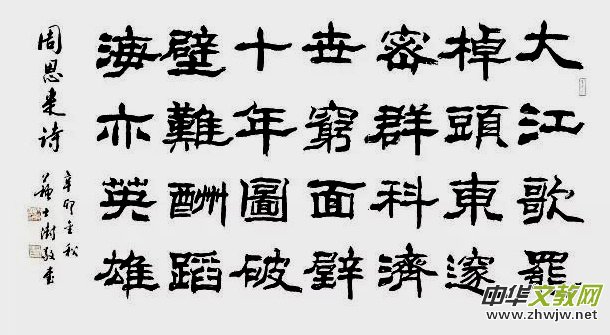 大江歌罷
棹頭東邃
密群科濟
世窮面壁
十年圖破
壁難酬蹈
海亦英雄
周恩来诗
辛卯金秋
蘇士澍敬書
中华文教网
www.zhwjw.net